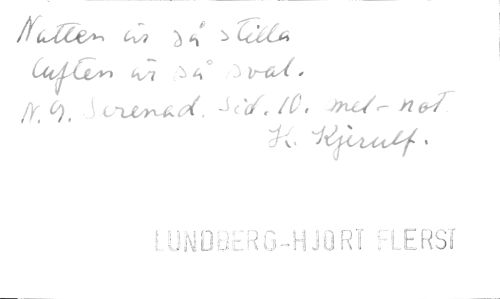 Natten är så stilla
luften är så sval.
N.G. Serenad. Sid. 10. mel-not.
H. Kjerulf.
LUNDBERG-HJORT FLERST